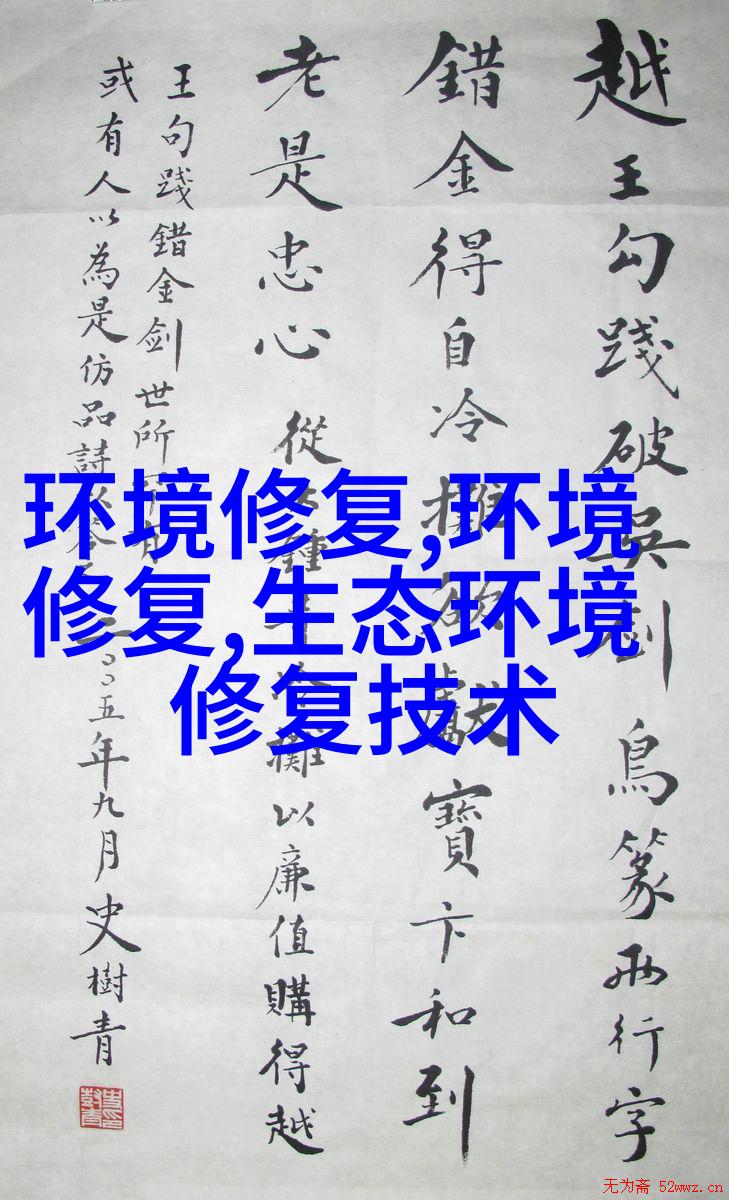 越王勾踐破吳剑鳥篆兩行字
錯金得自冷攤欲獻寶卞和到
老是忠心 從冷攤以廉值購得越
王句踐錯金剑世所
或有人以為是仿品詩以二〇〇五年九月史樹青
环境修复,环境
修复,生态环境
修复技术
无为斋 52wwz.cn